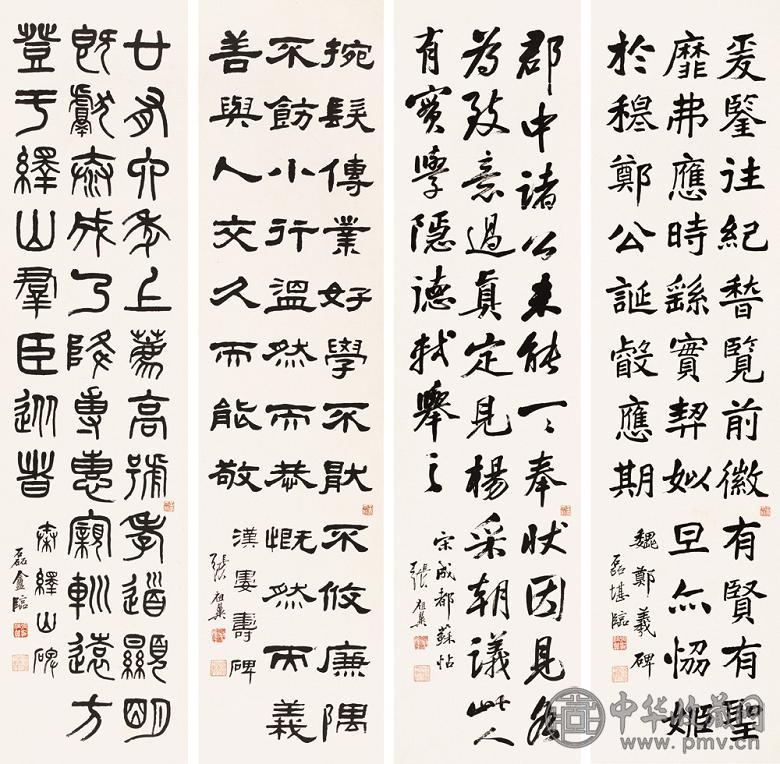 爰鑒往紀稽覽前徽有賢有聖
靡弗應時繇實契姒旦亦恊姬
於穆鄭公誕叡應期
魏鄭羲碑
磊堪臨
郡中諸公未能一一奉狀因見各
為致意過真定見楊采朝議此人
有實學隱德軾舉之
宋成都蘇帖
張祖翼
捥髮傳業好學不猒不攸廉隅
不飭小行溫然而恭慨然而義
善與人交久而能敬
漢婁壽碑
張祖翼
廿有六年上薦高號孝道顯明
既獻泰成乃降専惠親巡遠方
登于繹山羣臣從者
秦繹山碑
磊盦臨
中华收藏网
www.pmv.cn